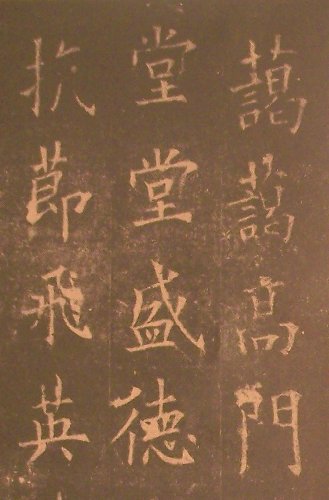 藹藹高門
堂堂盛德
抗節飛英